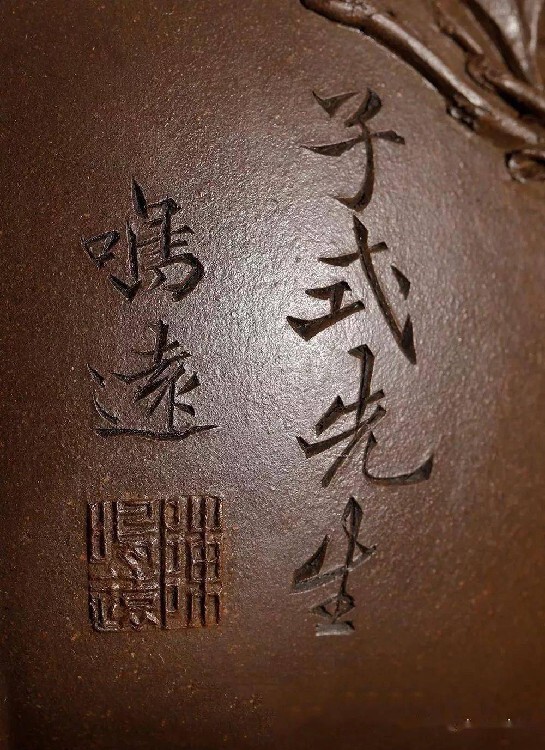 子式先生
鳴遠